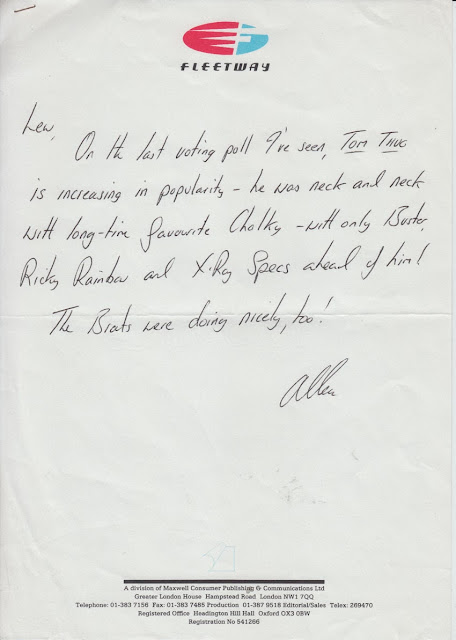 FLEETWAY
Lew,
On the last voting poll I've seen, TOM THUG
is increasing in popularity - he was neck and neck
with long-time favourite Chalky - with only Buster,
Ricky Rainbow and X-Ray Specs ahead of him!
The Brats were doing nicely, too!
Allen
A division of Maxwell Consumer Publishing & Communications Ltd
Greater London House Hampstead Road London NW1 7QQ
Telephone: 01-383 7156 Fax: 01-383 7485 Production 01-387 9518 Editorial/Sales Telex: 269470
Registered Office Headington Hill Hall Oxford OX3 0BW
Registration No 541266